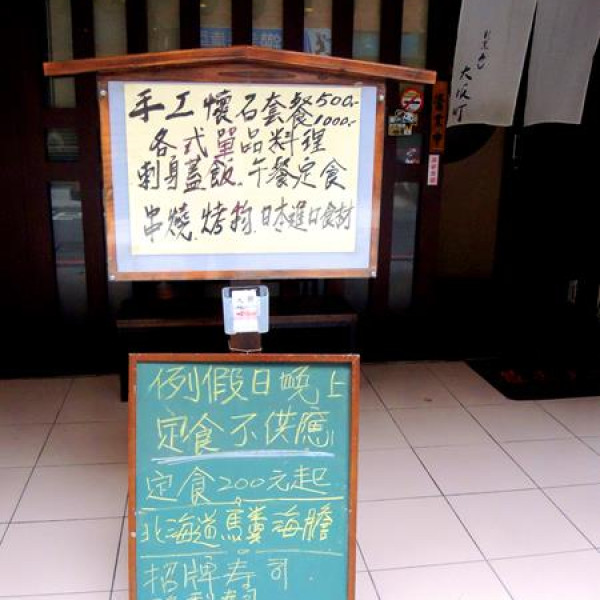 手工懷石套餐500.-
1000.-
各式單品料理
刺身蓋飯.午餐定食
串燒.烤物.日本進口食材
例假日晚上
定食不供應
定食200元起
北海道馬糞海膽
招牌壽司
大阪町
營業中